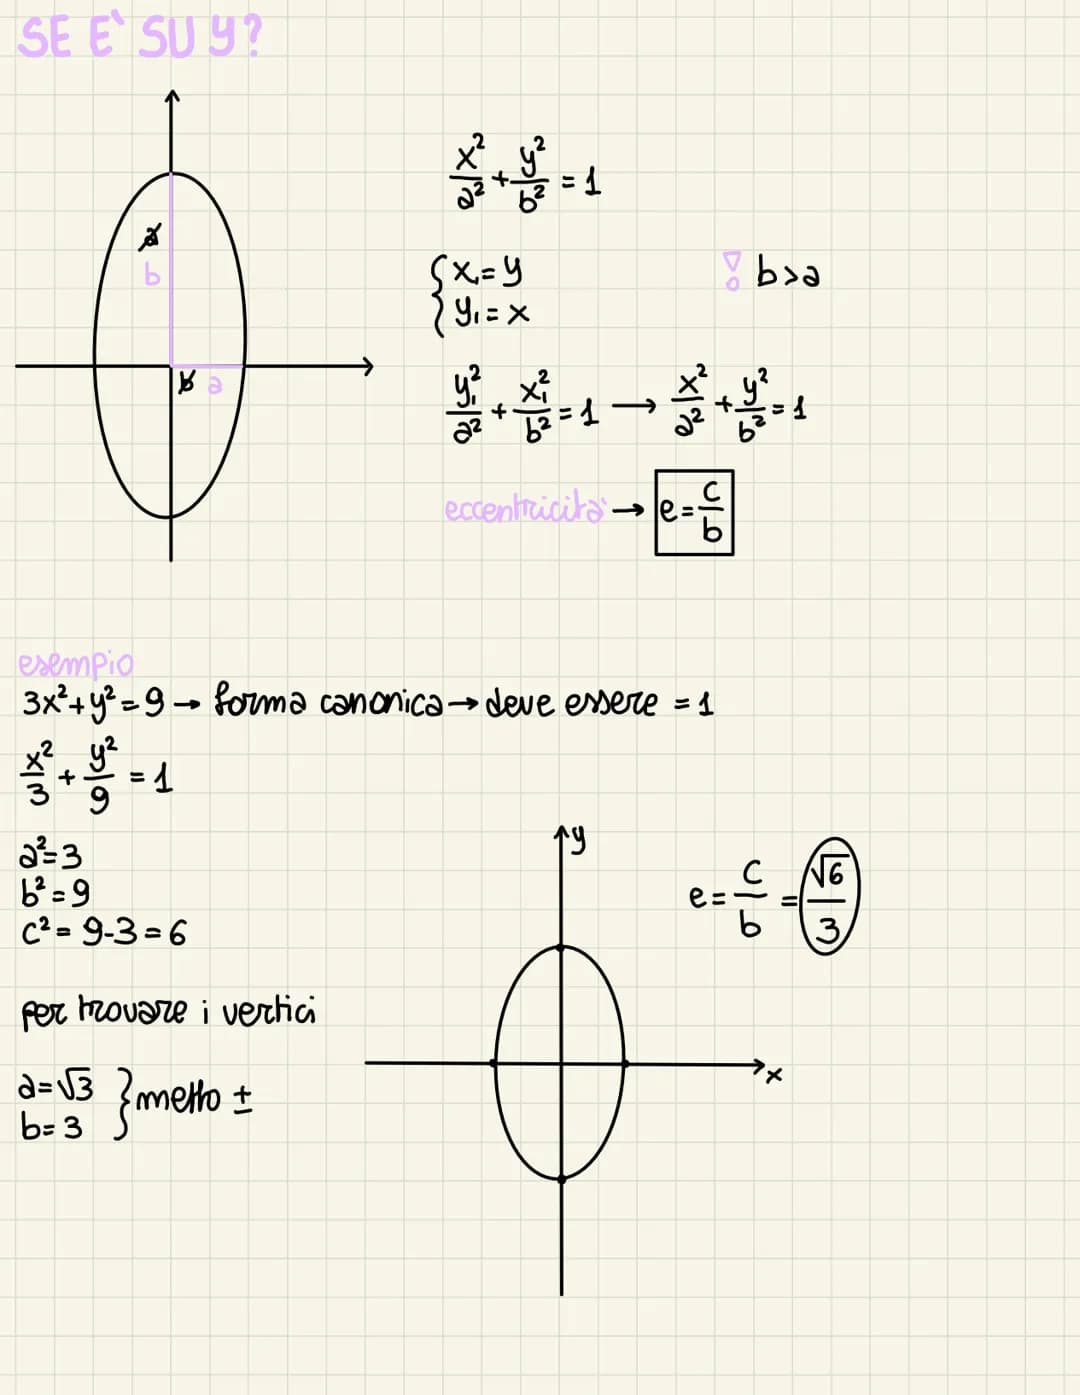 SE E' SU Y?
x²/a² + y²/b² = 1
a
b
{x₁=y
y₁=x
! b>a
b a
y₁²/a² + x₁²/b² = 1 → x²/a² + y²/b² = 1
eccentricità → e = c/b
esempio
3x²+y²=9 → forma canonica → deve essere = 1
x²/3 + y²/9 = 1
a²=3
b²=9
c²= 9-3=6
y
e = c/b = √6/3
per trovare i vertici
x
a=√3 } metto ±
b=3